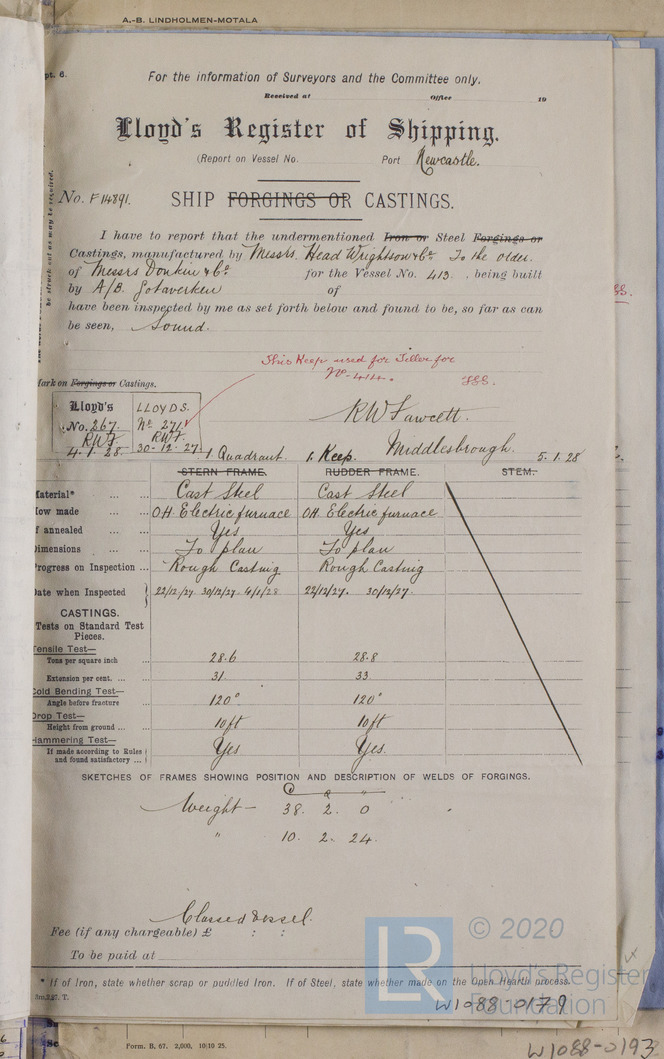 A.-B. LINDHOLMEN-MOTALA
pt. 6.
For the information of Surveyors and the Committee only.
Received at Office 19
Lloyd's Register of Shipping.
(Report on Vessel No. Port Newcastle.
No. F14891. SHIP FORGINGS OR CASTINGS.
be struck out as may be required.
I have to report that the undermentioned Iron or Steel Forgings or
Castings, manufactured by Messrs. Head Wrightson & Co To the order
of Messrs Donkin & Co for the Vessel No. 413. , being built
by A/B. Gotaverken of
have been inspected by me as set forth below and found to be, so far as can
be seen, Sound.
This Keep used for Tiller for
No-414.
Mark on Forgings or Castings.
Lloyd's LLOYDS.
No. 267. No 271
RWF RWF.
4.1.28. 30-12.27
RW Fawcett.
1 Quadrant. 1. Keep. Middlesbrough. 5.1.28
STERN FRAME. RUDDER FRAME. STEM.
Material* ... ... Cast Steel Cast Steel
How made ... ... OH. Electric furnace OH. Electric furnace
If annealed ... ... Yes Yes
Dimensions ... ... To plan To plan
Progress on Inspection ... Rough Casting Rough Casting
Date when Inspected 22/12/27. 30/12/27. 4/1/28 22/12/27. 30/12/27.
CASTINGS.
Tests on Standard Test
Pieces.
Tensile Test—
Tons per square inch ... 28.6 28.8
Extension per cent. ... ... 31. 33
Cold Bending Test—
Angle before fracture 120° 120°
Drop Test—
Height from ground ... ... 10ft 10ft
Hammering Test—
If made according to Rules
and found satisfactory ... Yes Yes.
SKETCHES OF FRAMES SHOWING POSITION AND DESCRIPTION OF WELDS OF FORGINGS.
Weight — 38. 2. 0
" 10. 2. 24.
Classed Vessel.
Fee (if any chargeable) £ : :
To be paid at
© 2020
LR
Lloyd's Register
Foundation
* If of Iron, state whether scrap or puddled Iron. If of Steel, state whether made on the Open Hearth process.
W1088-0179
Form. B, 67. 2,000, 10:10 25.
W1088-0193